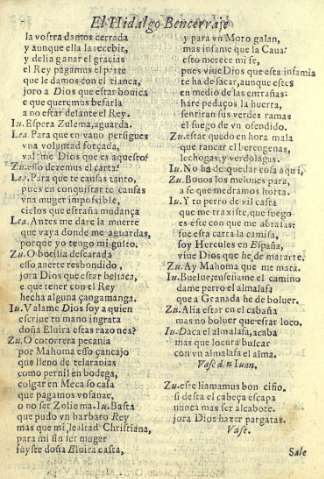 El Hidalgo Bencerraje
la vostra damos cerrada
y aunque ella la recebir,
y delia ganar el gracias
el Rey pagamus el parte
que le damos con el tianca,
joro a Dios que estar bonica
e que queremos besarla
a no estar delante el Rey.
Iu. Espera Zulema, aguarda.
Lea. Para que en vano persigues
vna voluntad forçada,
valame Dios que es aquesto?
Zu. esso dezemus el carta?
Lea. Para que te cansas tanto,
pues en conquistar te cansas
vna muger impossible,
cielos que estraña mudança
Lea. Antes me dare la muerte
que vaya donde me aguardas,
porque yo tengo mi gusto.
Zu. O bocilia descarada
esso auerte respondido,
jora Dios que estar beliaca,
e que tener con el Rey
hecha alguna çangamanga.
Iu. Valame Dios soy a quien
escriue tu mano ingrata
doña Eluira esas razones?
Zu. O cocorrera pecania
por Mahoma esso çancajo
que lleno de telarañas
como pernil en bodega,
colgar en Meca so casa
que pagamos vosanze,
o no ser Zolema. Iu. Basta
que pudo vn barbaro Rey
mas que mi lealtad Christiana,
para mi sin ser muger
fuyste doña Eluira casta,
y para vn Moro galan,
mas infame que la Caua?
esto merece mi fe,
pues viue Dios que esta infamia
te ha de sacar, aunque estes
en medio de las entrañas:
hare pedaços la huerta,
sentiran sus verdes ramas
el fuego de vn ofendido.
Zu. estar quedo en hora mala
que rancar el berengenas,
lechogas, y verdolagus.
Iu. No ha de quedar cosa aqui,
Zu. Bouos los meniones para,
a fe que medramos horta.
Iu. Y tu perro de vil casta
que me traxiste, que fuego
es esse con que me abrasas?
fue esta carta la camisa,
soy Hercules en España,
viue Dios que he de matarte.
Zu. Ay Mahoma que me mata.
Iu. Buelue, enseñame el camino
dame perro el almalafa
que a Granada he de boluer.
Zu. Alia estar en el cabaña
mas no boluer que estar loco.
Iu. Daca el almalafa, acaba
mas que locura buscar
con vn almalafa el alma.
Vase d<sup></sup>n Iuan.
Zu. esse liamamus bon ciño.
si desta el cabeça escapa
nunca mas ser alcabote.
jora Dios hazer pargatas.
Vase.
Sale